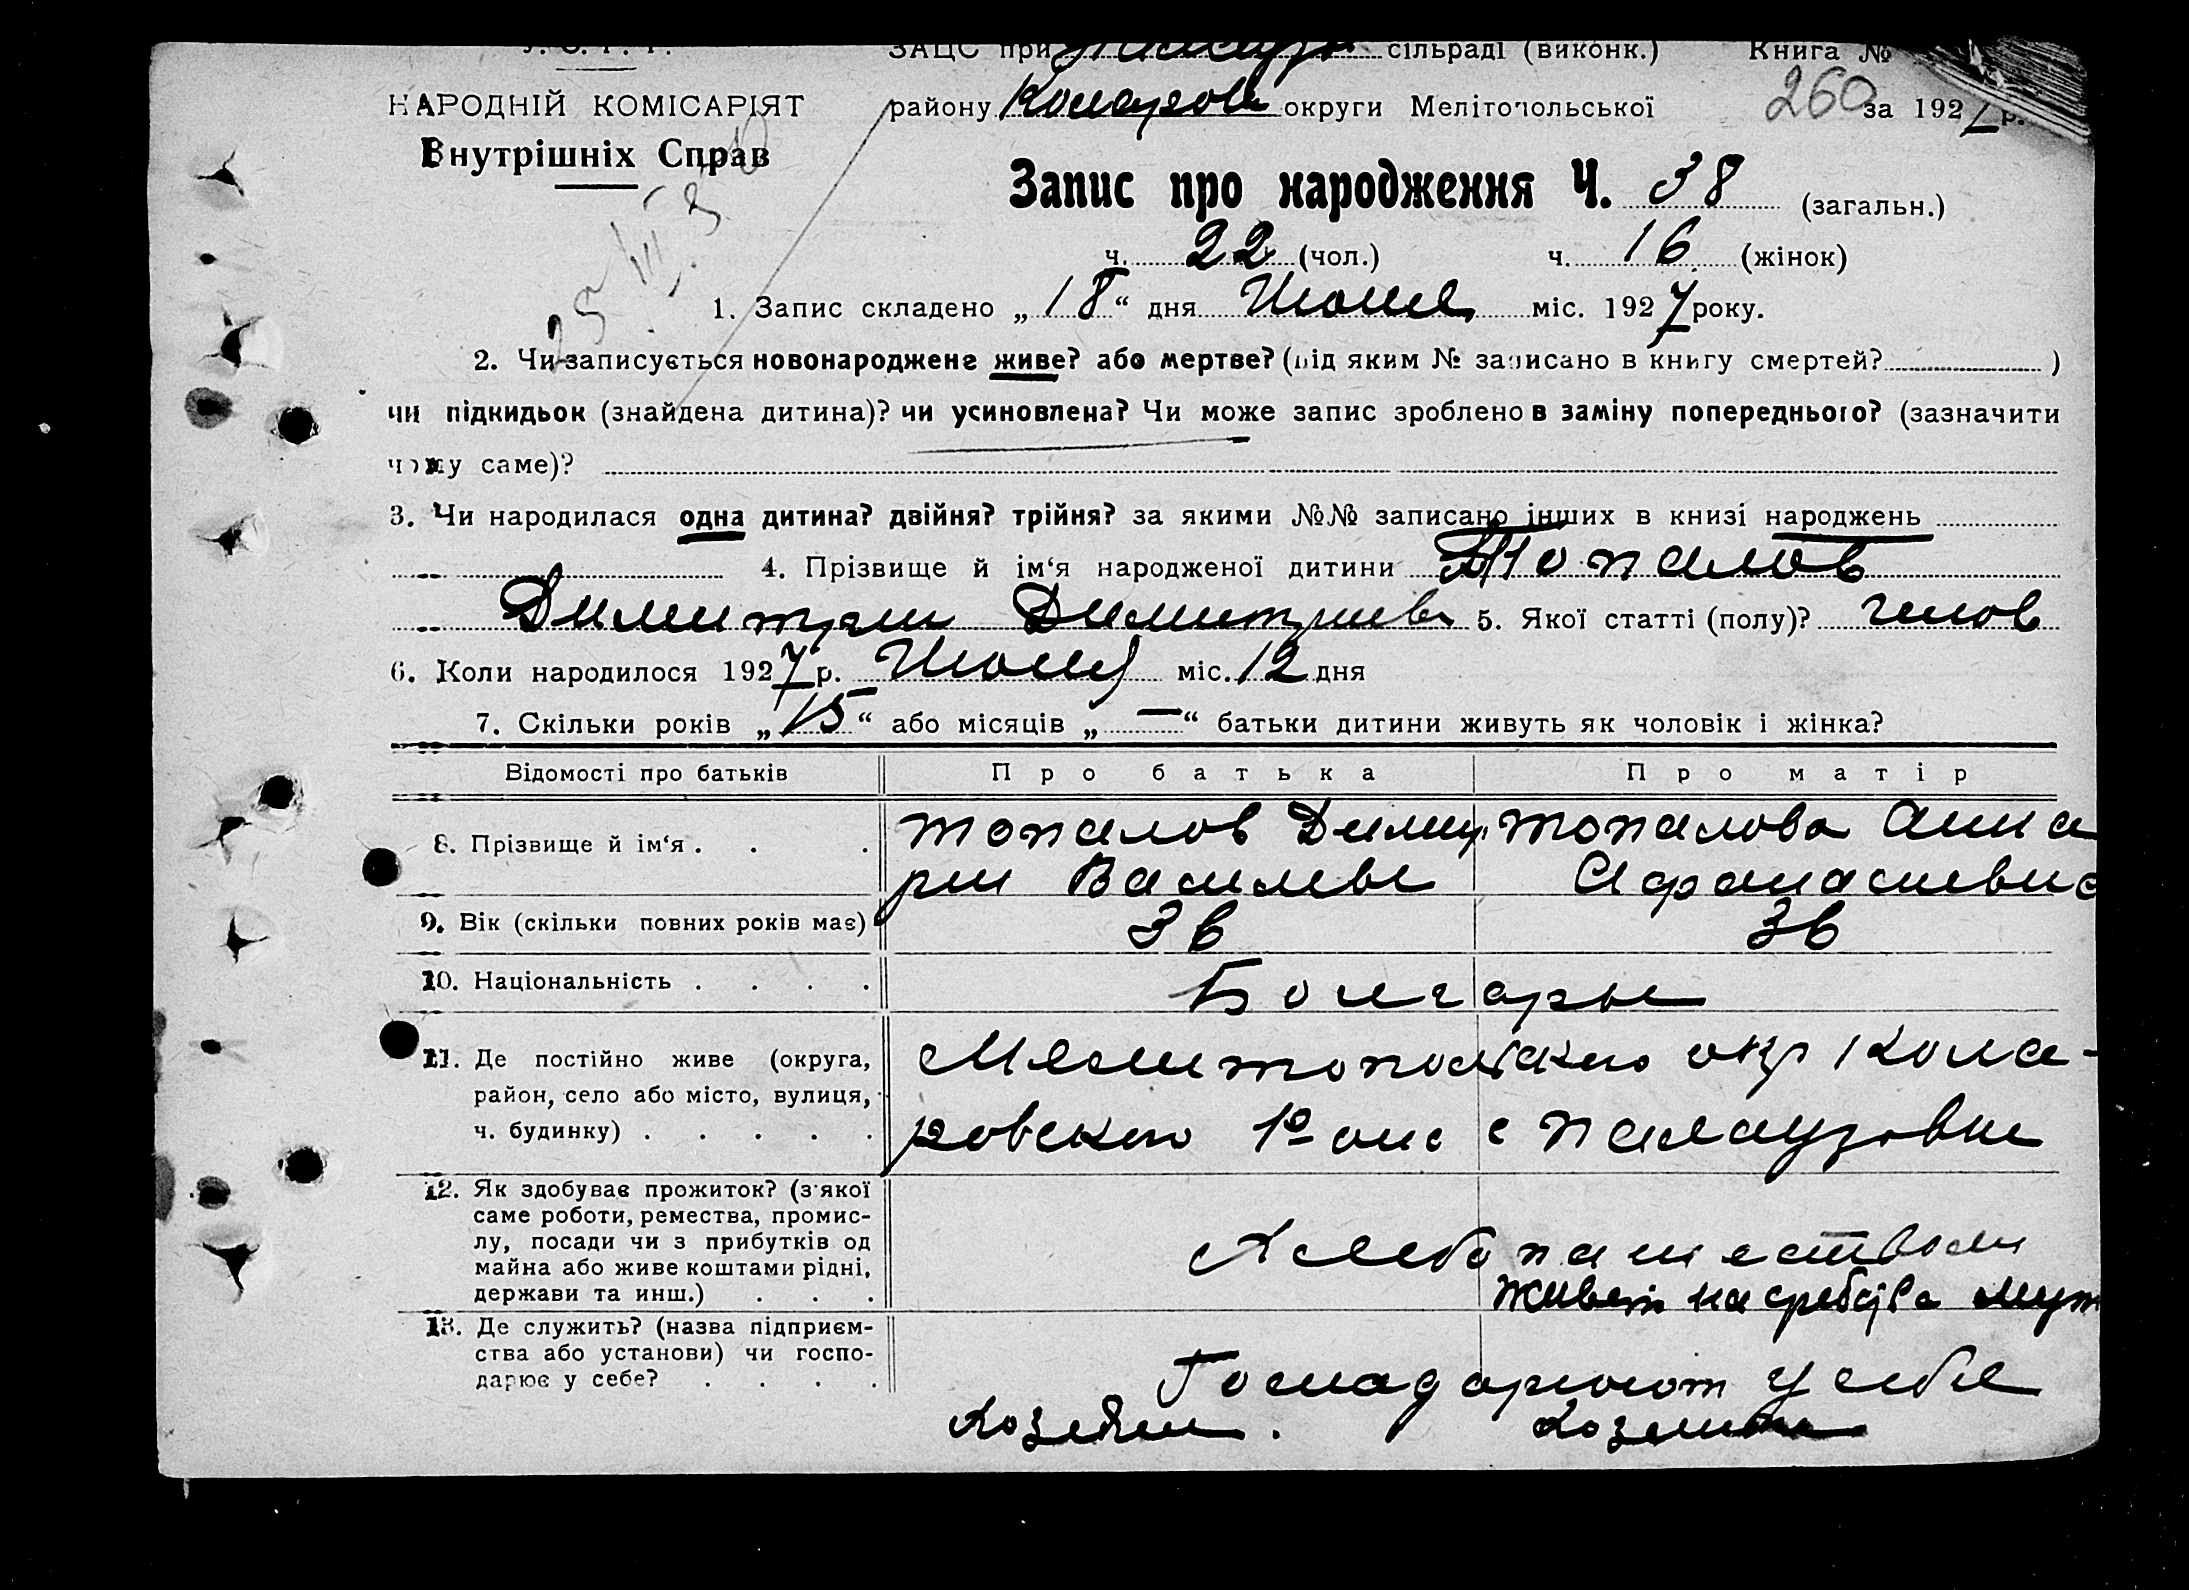 У. С. Р. Р. ЗАЦС при Палауз сільраді (виконк.) Книга №
НАРОДНІЙ КОМІСАРІЯТ району Коларов округи Мелітопольської 260 за 1927 р.
Внутрішніх Справ
Запис про народження Ч. 38 (загальн.)
ч. 22 (чол.) ч. 16 (жінок)
1. Запис складено „18“ дня Июля міс. 1927 року.
2. Чи записується новонароджене живе? або мертве? (під яким № записано в книгу смертей? )
чи підкидьок (знайдена дитина)? чи усиновлена? Чи може запис зроблено в заміну попереднього? (зазначити
чому саме)?
3. Чи народилася одна дитина? двійня? трійня? за якими №№ записано інших в книзі народжень
4. Прізвище й ім‘я народженої дитини Топалов
Димитрии Димитриев 5. Якої статті (полу)? челов
6. Коли народилося 1927 р. Июля міс. 12 дня
7. Скільки років „15“ або місяців „—“ батьки дитини живуть як чоловік і жінка?
Відомості про батьків Про батька Про матір
8. Прізвище й ім‘я . . . Топалов Димит Топалова Анна
рии Василев Афанасиевна
9. Вік (скільки повних років має) 36 36
10. Національність . . . . Болгары
11. Де постійно живе (округа, Мелитопольского окр Кола-
район, село або місто, вулиця, ровского с Палаузовки
ч. будинку) . . . . .
12. Як здобуває прожиток? (з якої
саме роботи, ремества, промис-
лу, посади чи з прибутків од Хлебопашеством
майна або живе коштами рідні,
держави та инш.) . . . Живет на средства муж
13. Де служить? (назва підприєм-
ства або установи) чи госпо-
дарює у себе? . . . . Господарюют у себе
Хозяин. Хозяйка